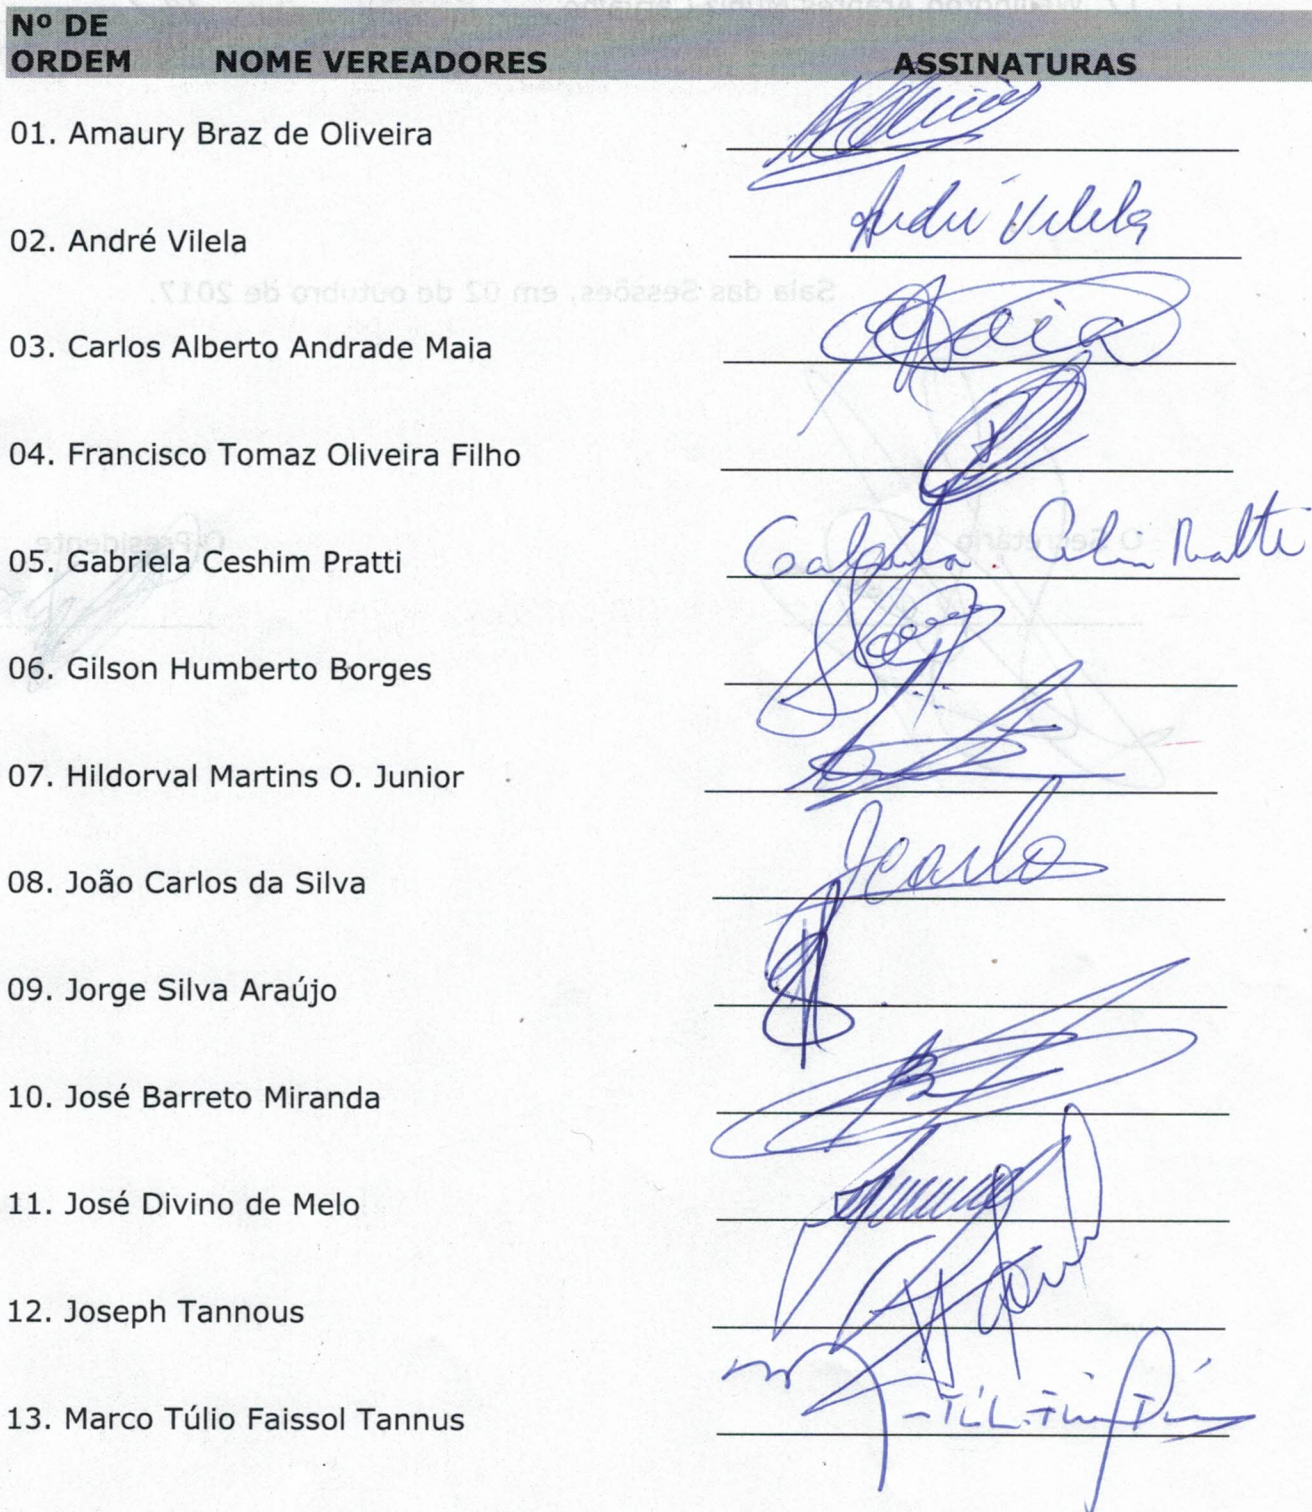 Nº DE
ORDEM NOME VEREADORES ASSINATURAS
01. Amaury Braz de Oliveira
02. André Vilela André Vilela
Sala das Sessões, em 02 de outubro de 2017.
03. Carlos Alberto Andrade Maia Maia
04. Francisco Tomaz Oliveira Filho
O Secretário O Presidente
05. Gabriela Ceshim Pratti
06. Gilson Humberto Borges
07. Hildorval Martins O. Junior
08. João Carlos da Silva Jcarlo
09. Jorge Silva Araújo
10. José Barreto Miranda
11. José Divino de Melo
12. Joseph Tannous
13. Marco Túlio Faissol Tannus